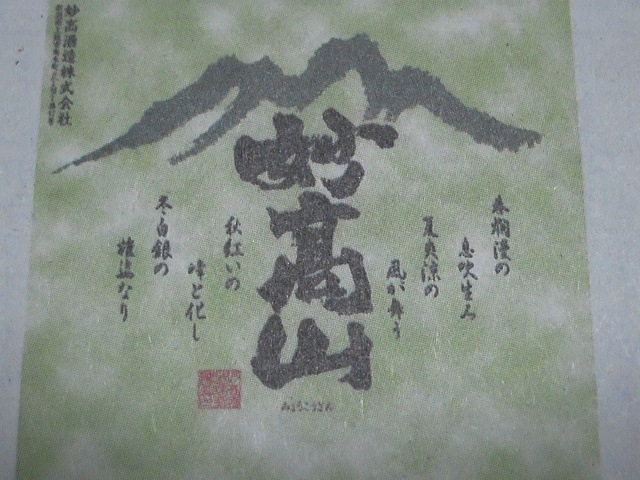 春爛漫の
息吹生み
夏爽涼の
風が舞う
妙高山
みょうこうざん
秋紅いの
峰と化し
冬白銀の
雄姿なり
妙高酒造株式会社